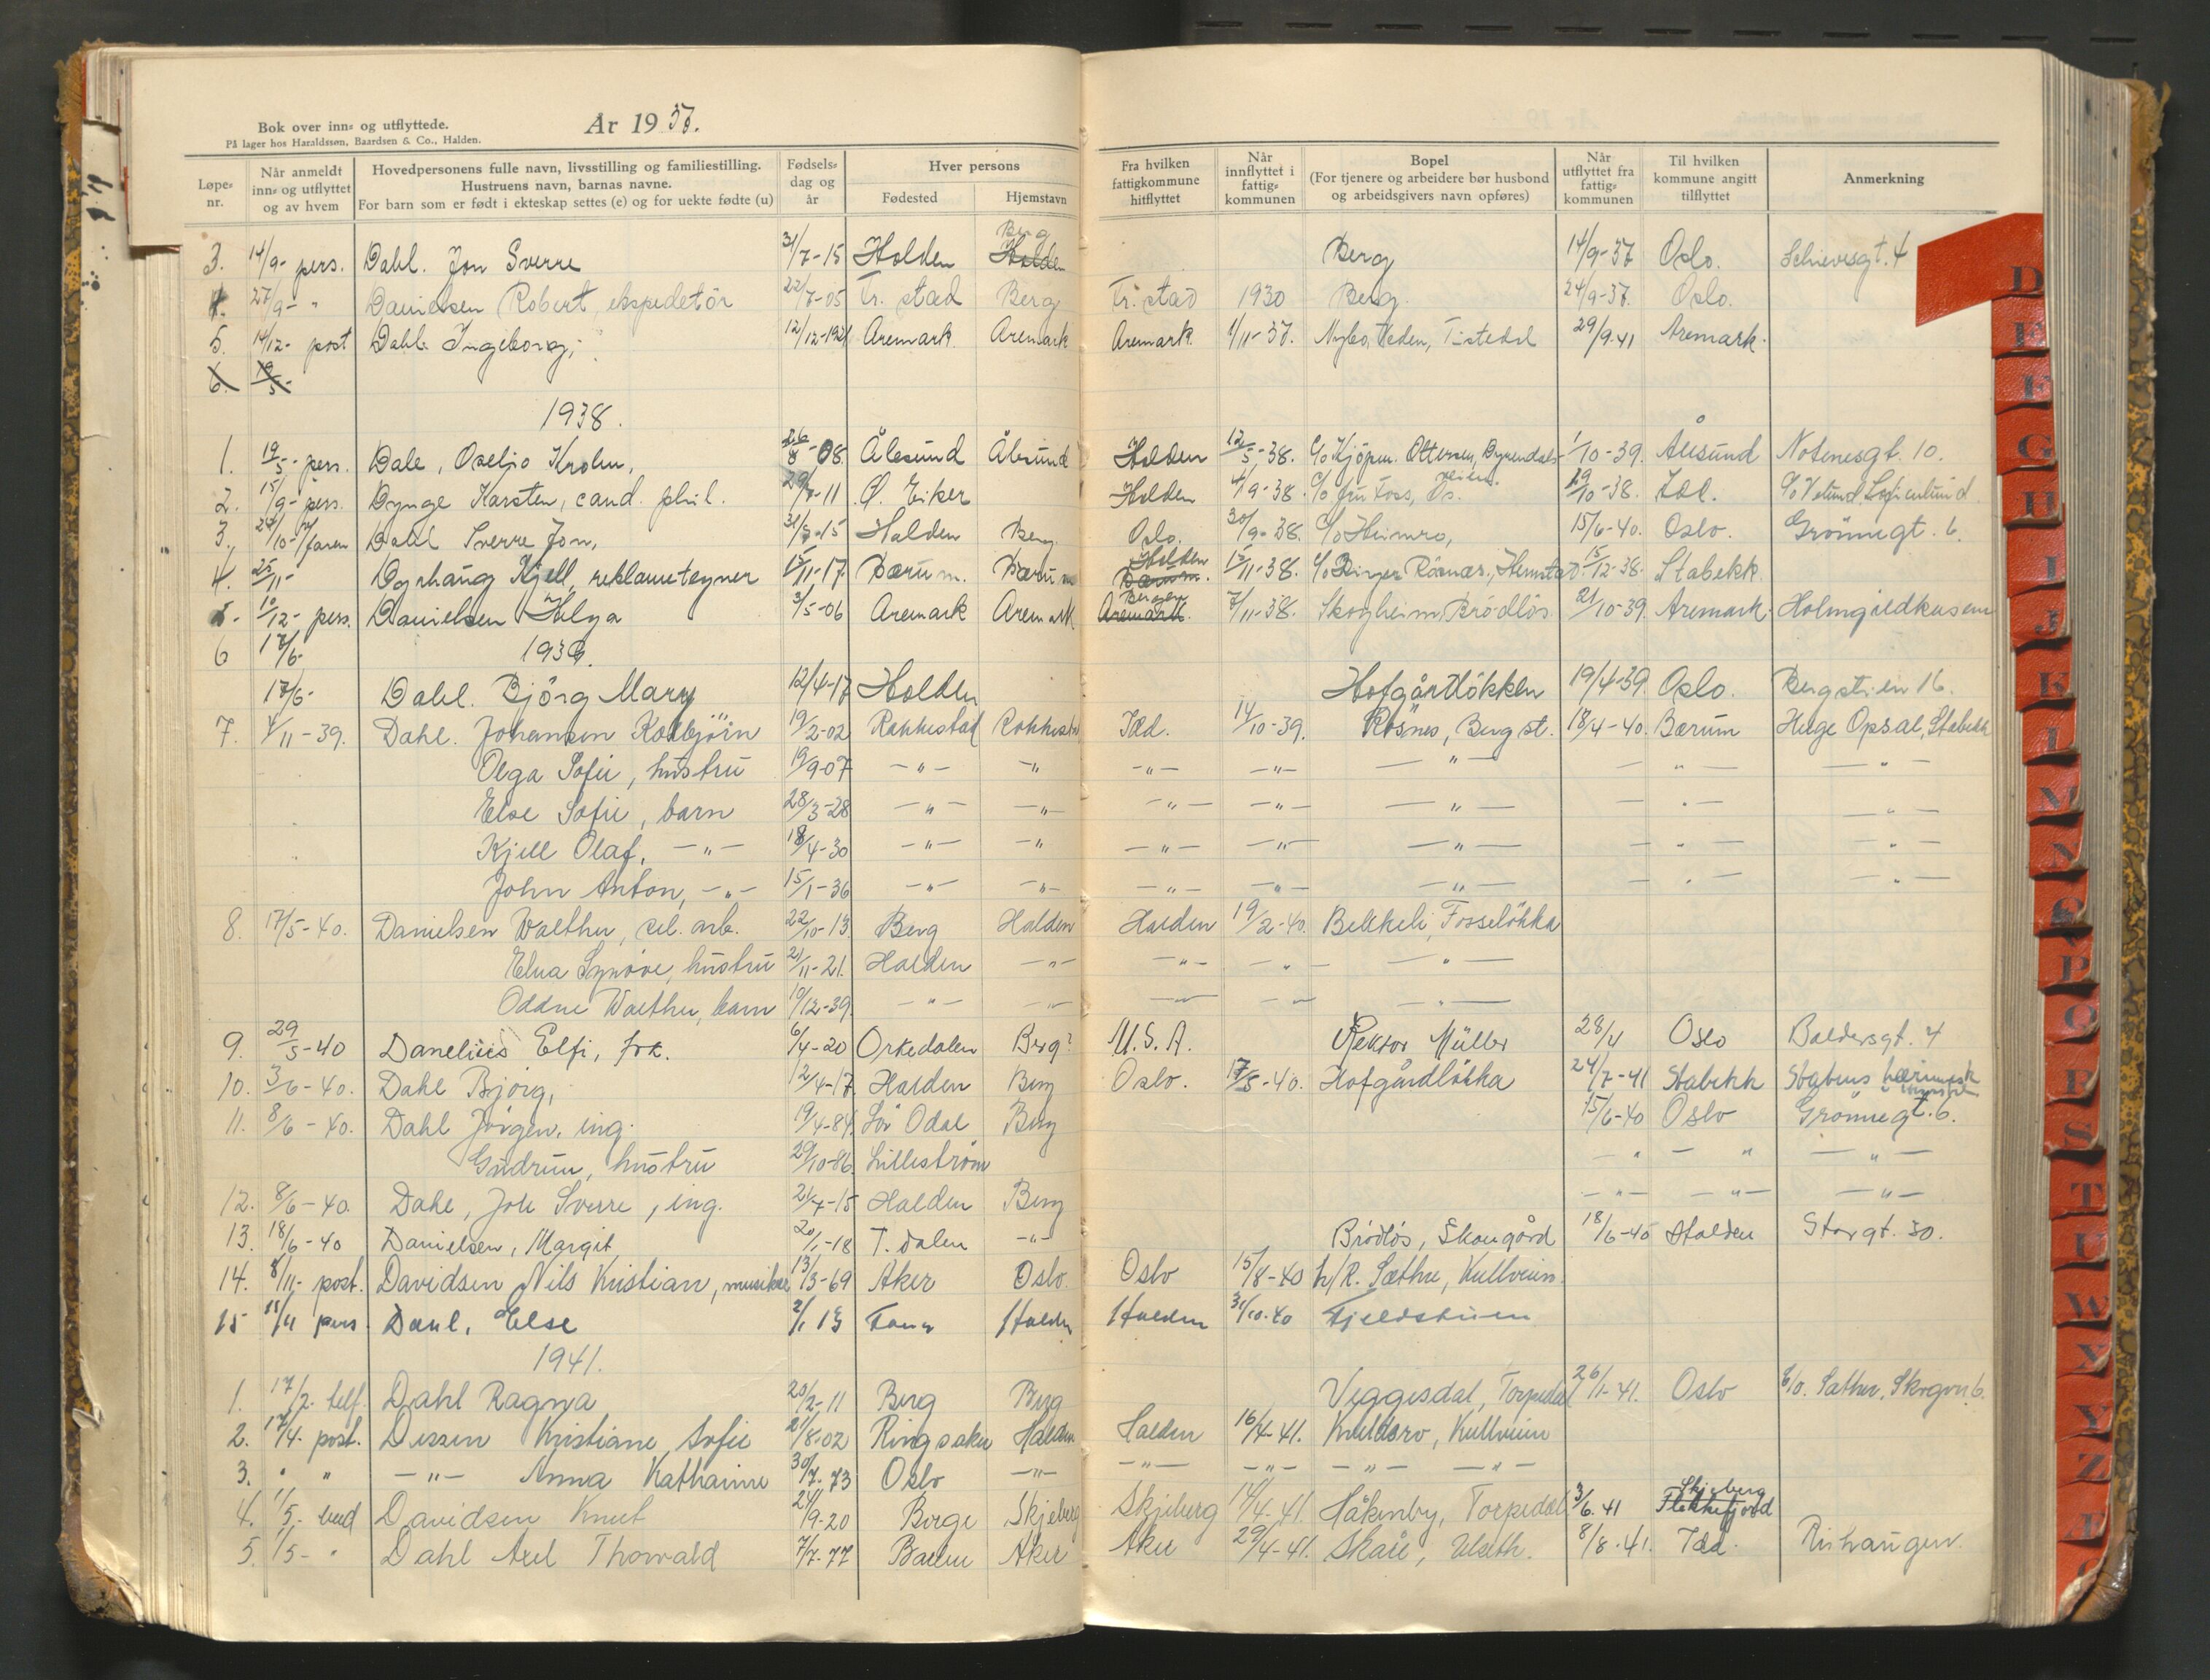 Bok over inn- og utflyttede.
På lager hos Haraldssøn, Baardsen & Co., Halden.
År 1937.
Løpe-nr. Når anmeldt inn- og utflyttet og av hvem Hovedpersonens fulle navn, livsstilling og familiestilling. Hustruens navn, barnas navne. For barn som er født i ekteskap settes (e) og for uekte fødte (u) Fødsels-dag og år Hver persons Fødested Hjemstavn Fra hvilken fattigkommune hitflyttet Når innflyttet i fattig-kommunen Bopel (For tjenere og arbeidere bør husbond og arbeidsgivers navn opføres) Når utflyttet fra fattig-kommunen Til hvilken kommune angitt tilflyttet Anmerkning
3. 14/9- pers. Dahl. Jon Sverre 31/7-15 Halden Berg Halden Berg 14/9-37 Oslo. Schivesgt. 4
4. 27/9- " Danielsen Robert, ekspeditør 22/7-05 Tr. stad Berg Tr. stad 1930 Berg. 24/9-37 Oslo.
5. 14/12- post Dahl. Ingeborg, 12/12-1921 Aremark Aremark Aremark. 1/11-37. Nybo, Veden, Tistedal 29/9-41 Aremark.
6. 19/5-
1938.
1. 19/5- pers. Dale, 08. Ålesund Ålesund Halden 12/5-38. c/o Kjöpm. Ottersen, Byrendals- 1/10-39. Ålesund Notenesgt. 10.
veien.
2. 15/9- pers. Dynge Karsten, cand. phil. 29/7-11 Ø. Eiker Halden 4/9-38. c/o fru Foss, Os. 19/10-38. Idd.
3. faren Dahl Sverre Jon, 31/7-15 Halden Berg Oslo. 30/9-38. c/o Heimro, 15/6-40. Oslo. Grönnegt. 6.
4. 25/11- Dyrhaug Kjell, reklametegner 15/11-17 Bærum. Bærum Halden Bærum. 15/11-38. c/o Birger Rösnæs, 15/12-38. Stabekk.
5. 10/12- pers. Danielsen Helga 3/5-06 Aremark Aremark Bergen Aremark. 7/11-38. Skogheim, Brödlös. 21/10-39. Aremark. Holmgildkasen
6 17/6- 1939.
17/6- Dahl. Björg Mary 12/4-17 Halden Hofgårdlökken 19/4-39. Oslo. Bergstien 16.
7. 4/11-39. Dahl. Johansen Kolbjörn 19/2-02 Rakkestad Rakkestad Idd. 14/10-39. Rösnes, Berg st. 18/4-40. Bærum Hege Opsal, Stabekk
Olga Sofie, hustru 19/9-07 -"- -"- -"- -"- -"- -"- -"-
Else Sofie, barn 28/3-28 -"- -"- -"- -"- -"- -"- -"-
Kjell Olaf, -"- 18/4-30 -"- -"- -"- -"- -"- -"- -"-
John Anton, -"- 15/1-36 -"- -"- -"- -"- -"- -"- -"-
8. 17/5-40. Danielsen Walther, cel. arb. 22/10-13 Berg Halden Halden 19/2-40. Bekkeli, Fosselökka
Elna Synöve, hustru 21/11-21. Halden -"- -"- -"- -"-
Oddne Walther, barn 10/12-39. -"- -"- -"- -"- -"-
9. 29/5-40 Danelius Elfi, frk. 6/4-20 Orkedalen Berg? U.S.A. Rektor Müller 28/4 Oslo Baldersgt. 4
10. 3/6-40. Dahl Bjórg, 12/4-17 Halden Berg Oslo. 17/5-40. Hofgårdlökka 24/7-41 Stabekk
11. 8/6-40. Dahl Jörgen, ing. 19/4-84. Sör Odal Berg 15/6-40 Oslo Grönnegt. 6.
Gudrun, hustru 29/10-86. Lilleström -"- -"- -"-
12. 8/6-40. Dahl, Jon Sverre, ing. 21/7-15 Halden Berg -"- -"- -"-
13. 18/6-40 Danielsen, Margit 20/1-18 T. dalen -"- Brödlös, Skaugård 18/6-40 Halden Storgt. 30.
14. 8/11- post. Davidsen Nils Kristian, musiker 13/3-69 Aker Oslo. Oslo 15/8-40 h/R. Sæthre, Kullveien.
15 11/11 pers. Dahl, Else 2/1 Halden Halden 31/10-40 Fjeldstuen
1941.
1. 17/2. telf. Dahl Ragna 20/2-11 Berg Berg Veggesdal, Torpedal 26/1-41. Oslo c/o. Sæther, Skogvn. 6.
2. 17/4. post. Dissen Kristiane Sofie 21/8-02 Ringsaker Halden Halden 16/4-41. Kullveien
3. " " -"- Anna Katharine 30/7-73 Oslo -"- -"- -"- -"- -"-
4. 1/5. bud Davidsen Knut 24/9-20 Borge Skjeberg Skjeberg 14/4-41. Håkenby, Torpedal 3/6.41 Skjeberg Flekkefjord
5. 1/5- " Dahl Axel Thorvald 7/7-77 Aker Aker 29/4-41. 8/8-41. Idd. Rishaugen.
D
E
F
G
H
I
J
K
L
M
N
O
P
Q
R
S
T
U
W
X
Y
Z
Æ